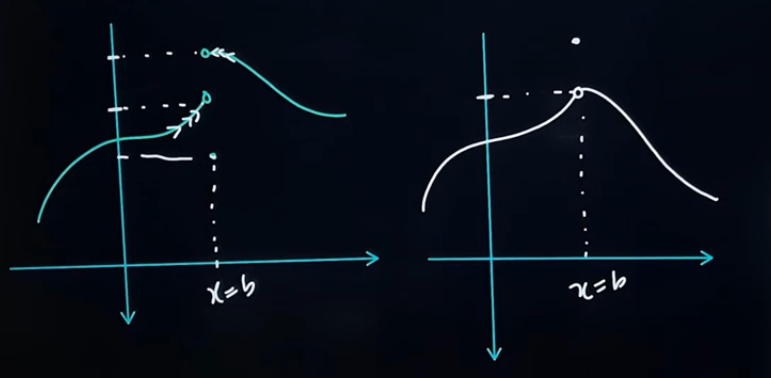 x=b
x=b